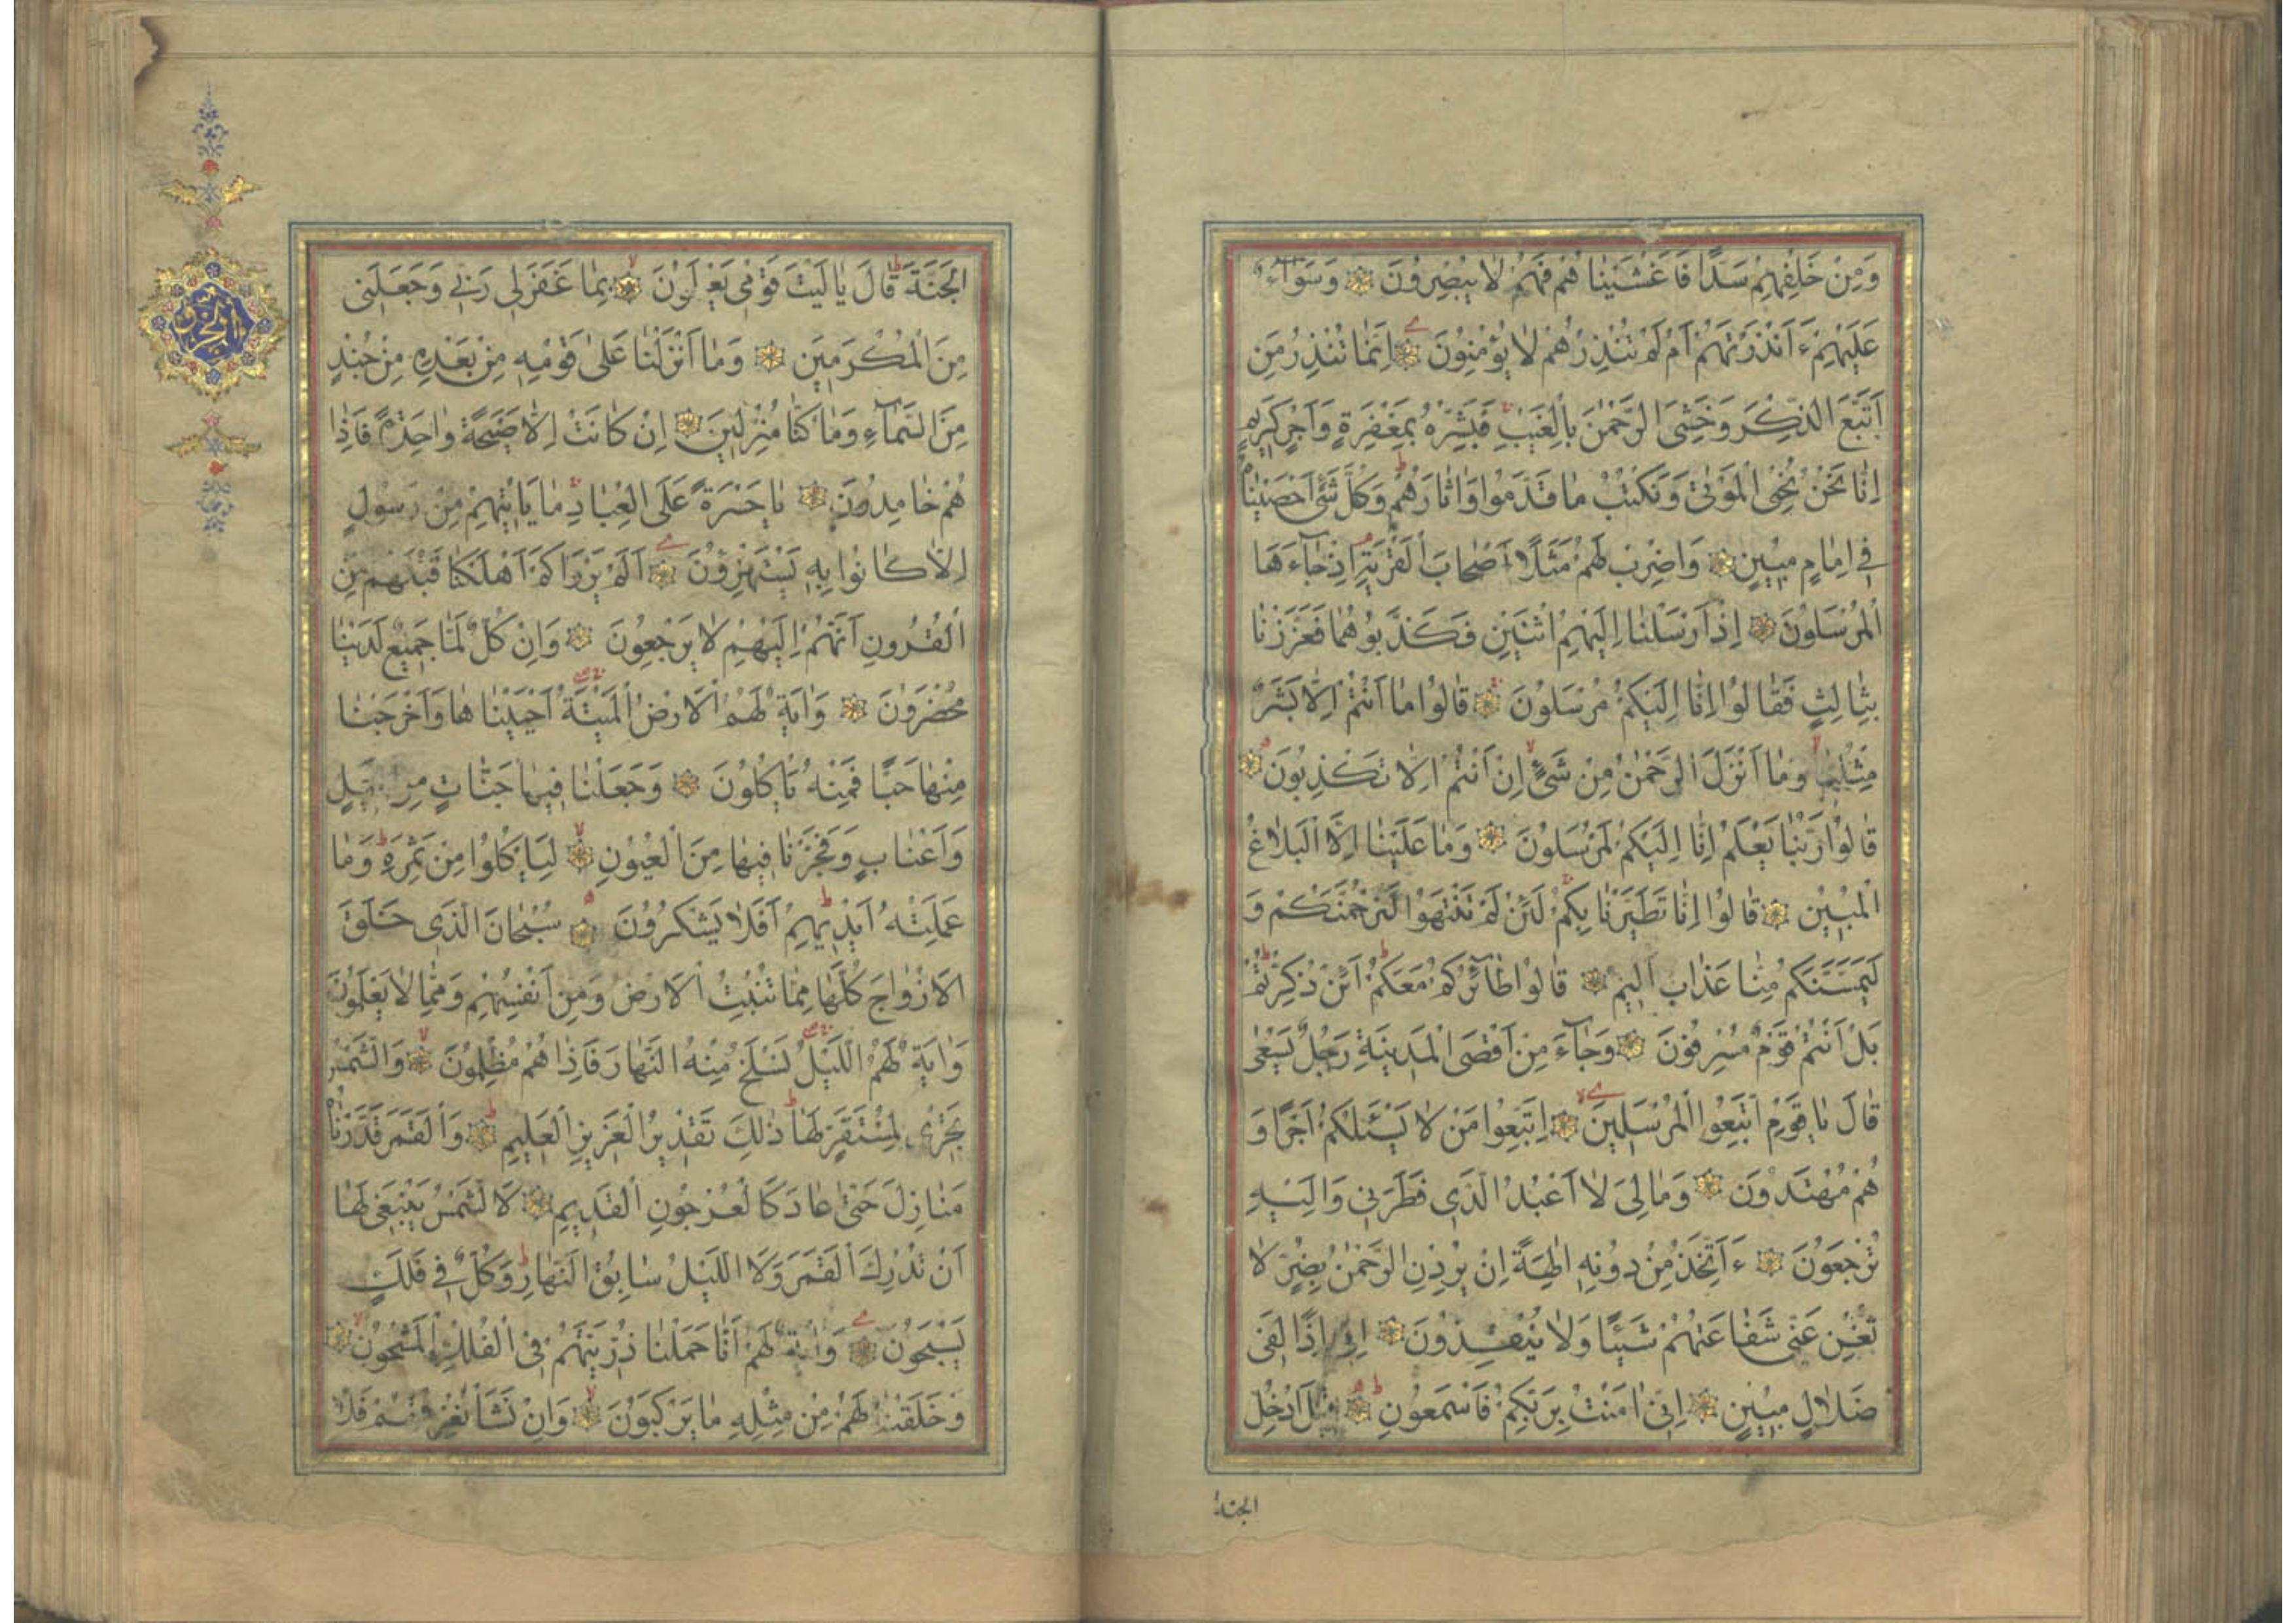 وَمِنْ خَلْفِهِمْ سَدًّا فَاَغْشَيْنَاهُمْ فَهُمْ لَا يُبْصِرُونَ وَسَوَآءٌ
عَلَيْهِمْ ءَاَنْذَرْتَهُمْ اَمْ لَمْ تُنْذِرْهُمْ لَا يُؤْمِنُونَ اِنَّمَا تُنْذِرُ مَنِ
اتَّبَعَ الذِّكْرَ وَخَشِىَ الرَّحْمٰنَ بِالْغَيْبِ فَبَشِّرْهُ بِمَغْفِرَةٍ وَاَجْرٍ كَرِيمٍ
اِنَّا نَحْنُ نُحْىِ الْمَوْتٰى وَنَكْتُبُ مَا قَدَّمُوا وَاٰثَارَهُمْ وَكُلَّ شَىْءٍ اَحْصَيْنَاهُ
فِى اِمَامٍ مُبِينٍ وَاضْرِبْ لَهُمْ مَثَلًا اَصْحَابَ الْقَرْيَةِ اِذْ جَآءَهَا
الْمُرْسَلُونَ اِذْ اَرْسَلْنَا اِلَيْهِمُ اثْنَيْنِ فَكَذَّبُوهُمَا فَعَزَّزْنَا
بِثَالِثٍ فَقَالُوا اِنَّا اِلَيْكُمْ مُرْسَلُونَ قَالُوا مَا اَنْتُمْ اِلَّا بَشَرٌ
مِثْلُنَا وَمَا اَنْزَلَ الرَّحْمٰنُ مِنْ شَىْءٍ اِنْ اَنْتُمْ اِلَّا تَكْذِبُونَ
قَالُوا رَبُّنَا يَعْلَمُ اِنَّا اِلَيْكُمْ لَمُرْسَلُونَ وَمَا عَلَيْنَا اِلَّا الْبَلَاغُ
الْمُبِينُ قَالُوا اِنَّا تَطَيَّرْنَا بِكُمْ لَئِنْ لَمْ تَنْتَهُوا لَنَرْجُمَنَّكُمْ وَ
لَيَمَسَّنَّكُمْ مِنَّا عَذَابٌ اَلِيمٌ قَالُوا طَآئِرُكُمْ مَعَكُمْ اَئِنْ ذُكِّرْتُمْ
بَلْ اَنْتُمْ قَوْمٌ مُسْرِفُونَ وَجَآءَ مِنْ اَقْصَى الْمَدِينَةِ رَجُلٌ يَسْعٰى
قَالَ يَا قَوْمِ اتَّبِعُوا الْمُرْسَلِينَ اِتَّبِعُوا مَنْ لَا يَسْئَلُكُمْ اَجْرًا وَ
هُمْ مُهْتَدُونَ وَمَا لِىَ لَا اَعْبُدُ الَّذِى فَطَرَنِى وَاِلَيْهِ
تُرْجَعُونَ ءَاَتَّخِذُ مِنْ دُونِهِ اٰلِهَةً اِنْ يُرِدْنِ الرَّحْمٰنُ بِضُرٍّ لَا
تُغْنِ عَنِّى شَفَاعَتُهُمْ شَيْئًا وَلَا يُنْقِذُونَ اِنِّى اِذًا لَفِى
ضَلَالٍ مُبِينٍ اِنِّى اٰمَنْتُ بِرَبِّكُمْ فَاسْمَعُونِ قِيلَ ادْخُلِ
الجنة
الْجَنَّةَ قَالَ يَا لَيْتَ قَوْمِى يَعْلَمُونَ بِمَا غَفَرَ لِى رَبِّى وَجَعَلَنِى
مِنَ الْمُكْرَمِينَ وَمَا اَنْزَلْنَا عَلٰى قَوْمِهِ مِنْ بَعْدِهِ مِنْ جُنْدٍ
مِنَ السَّمَآءِ وَمَا كُنَّا مُنْزِلِينَ اِنْ كَانَتْ اِلَّا صَيْحَةً وَاحِدَةً فَاِذَا
هُمْ خَامِدُونَ يَا حَسْرَةً عَلَى الْعِبَادِ مَا يَاْتِيهِمْ مِنْ رَسُولٍ
اِلَّا كَانُوا بِهِ يَسْتَهْزِؤُنَ اَلَمْ يَرَوْا كَمْ اَهْلَكْنَا قَبْلَهُمْ مِنَ
الْقُرُونِ اَنَّهُمْ اِلَيْهِمْ لَا يَرْجِعُونَ وَاِنْ كُلٌّ لَمَّا جَمِيعٌ لَدَيْنَا
مُحْضَرُونَ وَاٰيَةٌ لَهُمُ الْاَرْضُ الْمَيْتَةُ اَحْيَيْنَاهَا وَاَخْرَجْنَا
مِنْهَا حَبًّا فَمِنْهُ يَاْكُلُونَ وَجَعَلْنَا فِيهَا جَنَّاتٍ مِنْ نَخِيلٍ
وَاَعْنَابٍ وَفَجَّرْنَا فِيهَا مِنَ الْعُيُونِ لِيَاْكُلُوا مِنْ ثَمَرِهِ وَمَا
عَمِلَتْهُ اَيْدِيهِمْ اَفَلَا يَشْكُرُونَ سُبْحَانَ الَّذِى خَلَقَ
الْاَزْوَاجَ كُلَّهَا مِمَّا تُنْبِتُ الْاَرْضُ وَمِنْ اَنْفُسِهِمْ وَمِمَّا لَا يَعْلَمُونَ
وَاٰيَةٌ لَهُمُ اللَّيْلُ نَسْلَخُ مِنْهُ النَّهَارَ فَاِذَا هُمْ مُظْلِمُونَ وَالشَّمْسُ
تَجْرِى لِمُسْتَقَرٍّ لَهَا ذٰلِكَ تَقْدِيرُ الْعَزِيزِ الْعَلِيمِ وَالْقَمَرَ قَدَّرْنَاهُ
مَنَازِلَ حَتّٰى عَادَ كَالْعُرْجُونِ الْقَدِيمِ لَا الشَّمْسُ يَنْبَغِى لَهَا
اَنْ تُدْرِكَ الْقَمَرَ وَلَا اللَّيْلُ سَابِقُ النَّهَارِ وَكُلٌّ فِى فَلَكٍ
يَسْبَحُونَ وَاٰيَةٌ لَهُمْ اَنَّا حَمَلْنَا ذُرِّيَّتَهُمْ فِى الْفُلْكِ الْمَشْحُونِ
وَخَلَقْنَا لَهُمْ مِنْ مِثْلِهِ مَا يَرْكَبُونَ وَاِنْ نَشَاْ نُغْرِقْهُمْ فَلَا